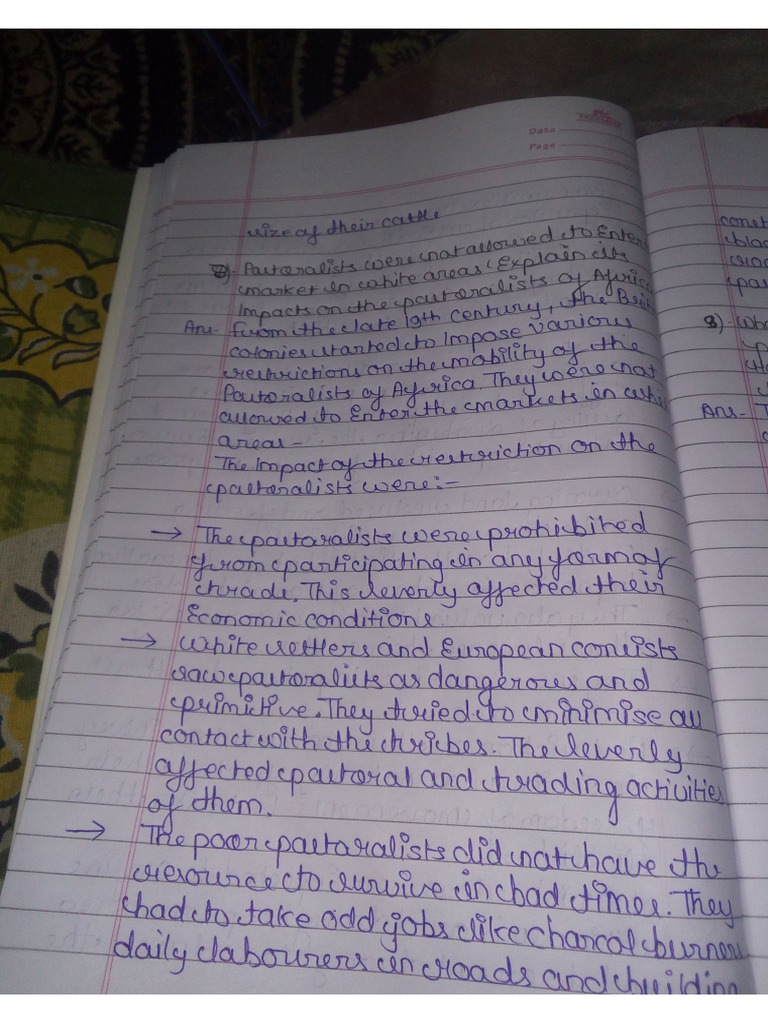 Date
Page
size of their cattle
7) Pastoralists were not allowed to Enter
market in white areas. Explain its
Impacts on the pastoralists of Africa
Ans- From the late 19th century, the Briti
colonies started to Impose various
restrictions on the mobility of the
Pastoralists of Africa. They were not
allowed to Enter the markets in white
areas-
The Impact of the restriction on the
pastoralists were:-
→ The pastoralists were prohibited
from participating in any form of
trade. This leverly affected their
Economic conditions
→ White settlers and European conists
saw pastoralists as dangerous and
primitive. They tried to minimise all
contact with the tribes. The leverly
affected pastoral and trading activities
of them.
→ The poor pastoralists did not have the
resource to survive in bad times. They
had to take odd jobs like charcol burners
daily labourers in roads and building
8) Who
Ans- T